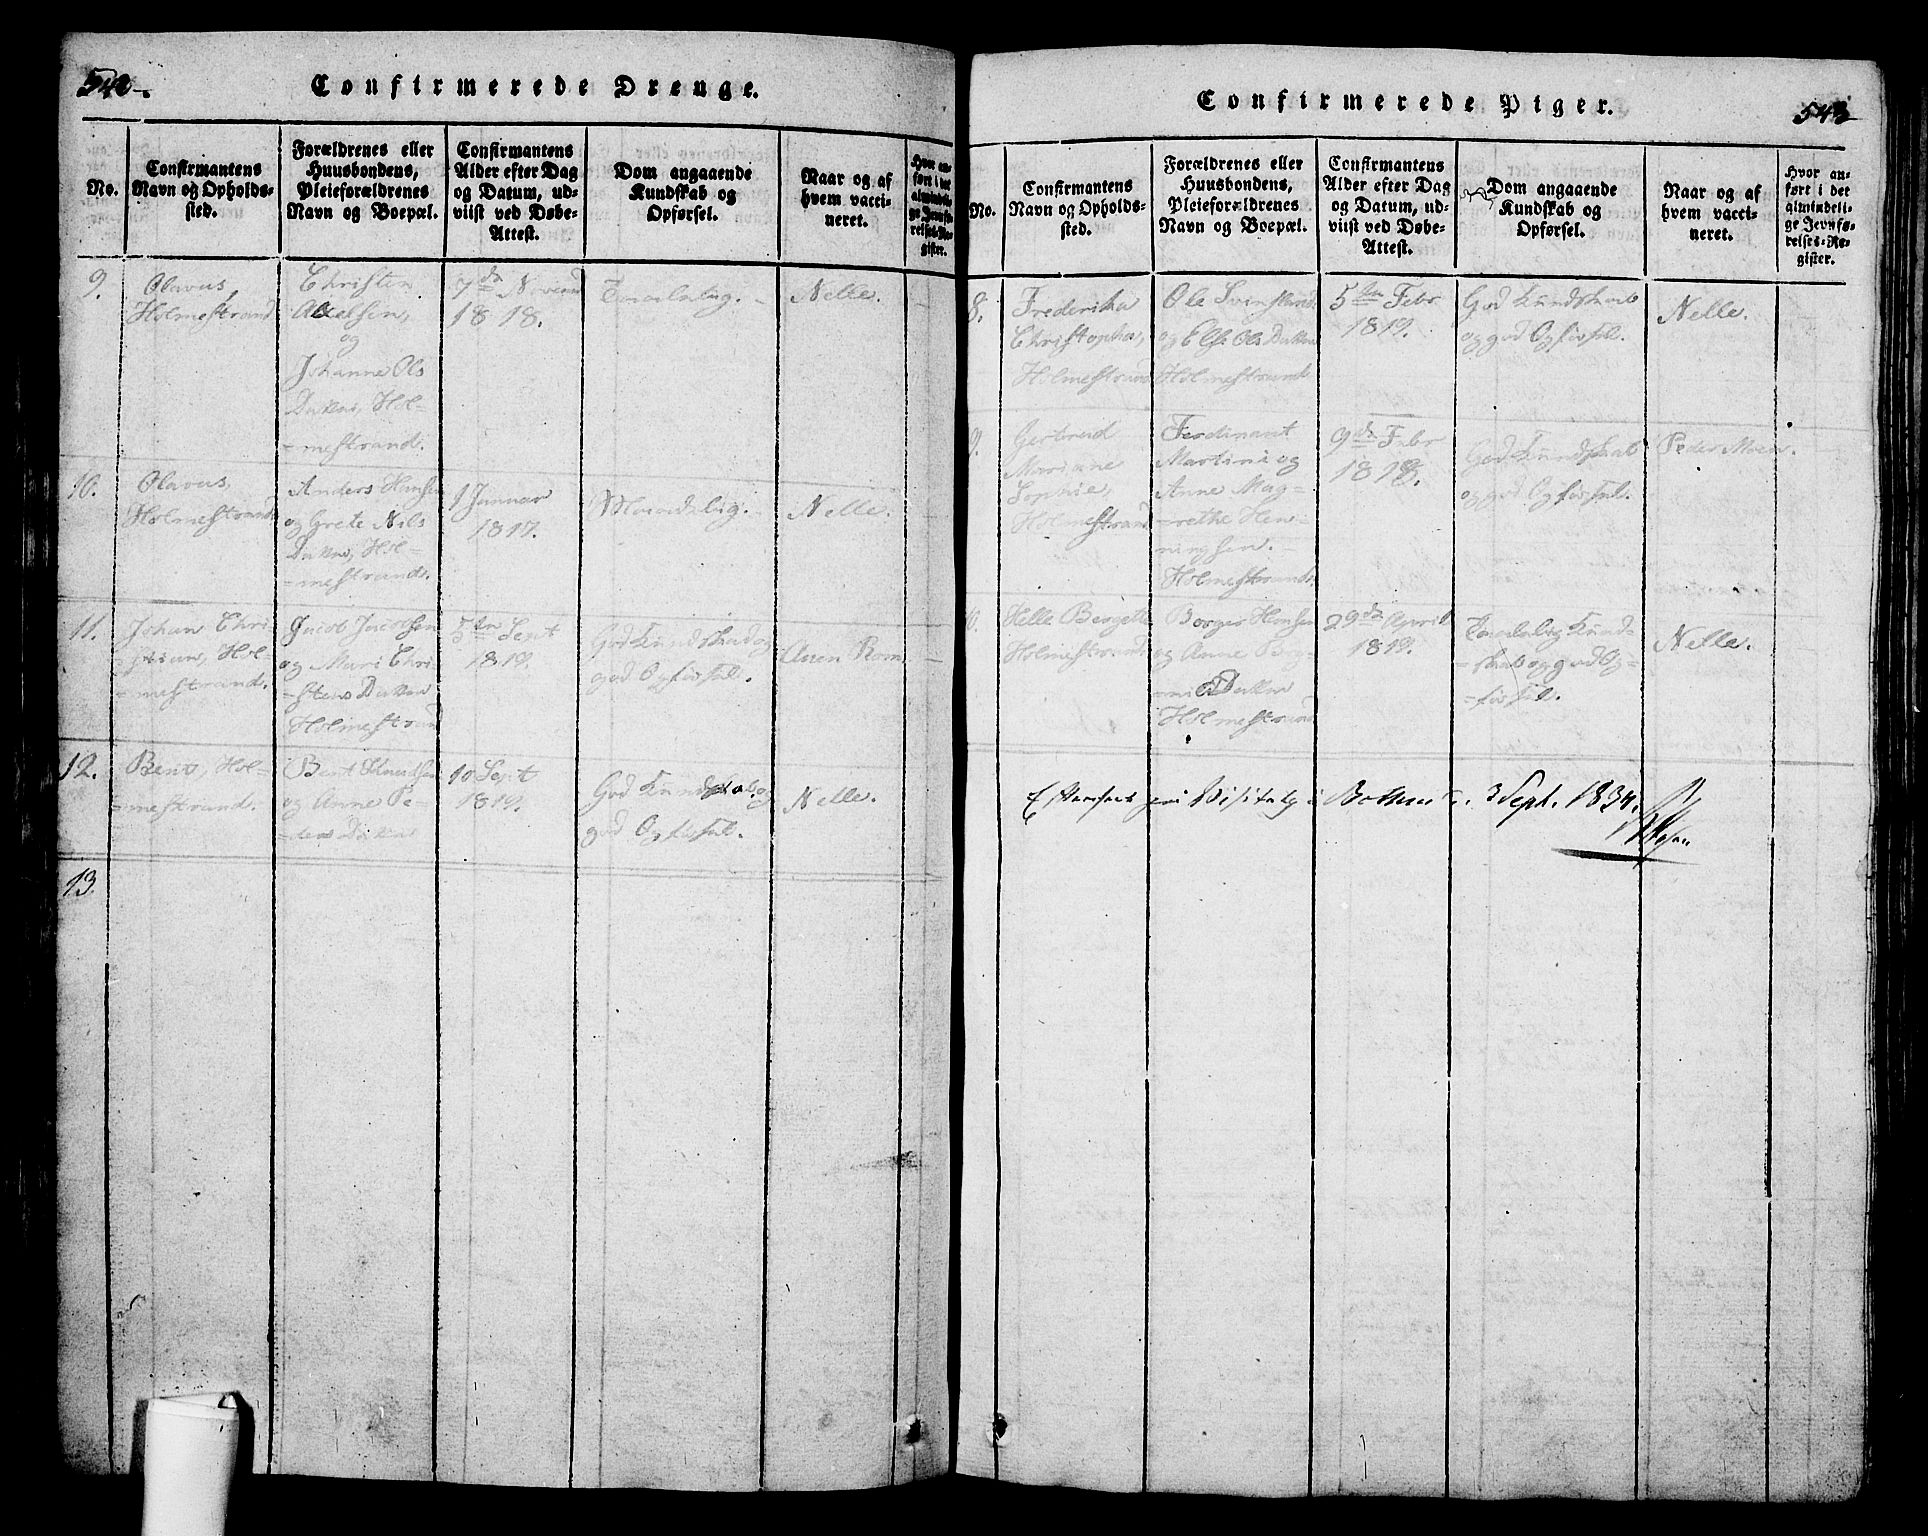 542
Confirmerede Drenge.
No.
Confirmantens
Navn og Opholds-
sted.
Forældrenes eller
Huusbondens,
Pleieforældrenes
Navn og Boepæl.
Confirmantens
Alder efter Dag
og Datum, ud-
viist ved Døbe-
Attest.
Dom angaaende
Kundskab og
Opførsel.
Naar og af
hvem vacci-
neret.
Hvor an-
ført i det
almindeli-
ge Jevnfø-
relses-Re-
gister.
9.
Olavus,
Holmestrand
Christen
Axelsen,
og
Johanne Ols
Datter, Hol-
-mestrand.
7de Novemb
1818.
Taalelig. -
Nelle.
10.
Olavus,
Holmestrand
Anders Hansen
og Grete Nils
Datter, Hol-
-mestrand.
1 Januar
1817.
Maadelig. -
Nelle.
11.
Johan Chri-
-stian, Hol-
-mestrand.
Jacob Jacobsen
og Mari Chri-
-stens Datter
Holmestrand
5te Sept
1819.
God Kundskab og
god Opførsel.
12.
Bent, Hol-
-mestrand.
Bent Knudsen
og Anne Pe-
-ders Datter
10 Sept
1819.
God Kundskab og
god Opførsel.
Nelle.
13.
Confirmerede Piger.
543
No.
Confirmantens
Navn og Opholds-
sted.
Forældrenes eller
Huusbondens,
Pleieforældrenes
Navn og Boepæl.
Confirmantens
Alder efter Dag
og Datum, ud-
viist ved Døbe-
Attest.
Dom angaaende
Kundskab og
Opførsel.
Naar og af
hvem vacci-
neret.
Hvor an-
ført i det
almindeli-
ge Jevnfø-
relses-Re-
gister.
8.
Frederikka
Christopha,
Holmestrand
Ole
og Else Ols Datter
Holmestrand
5te Febr
1819.
God Kundskab
og god Opførsel.
Nelle.
9.
Gertrud
Marianne
Sophie,
Holmestrand
Ferdinant
Martini og
Anne Mag-
-rethe Hen-
ningsen. -
Holmestrand
9de Febr
God Kundskab
og god Opførsel.
Peder Moen.
Helle Bergette
Holmestrand
Borger Hansen
og Anne
Datter
Holmestrand
29de April
1819.
Taalelig Kund-
-skab og god Op-
-førsel.
Nelle.
Visitats i 3 Sept. 1834.